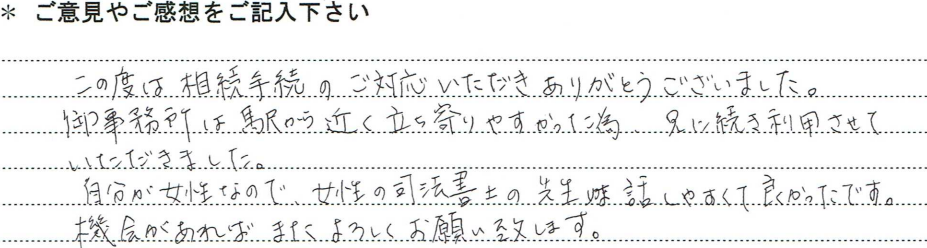 * ご意見やご感想をご記入下さい
この度は相続手続のご対応いただきありがとうございました。
御事務所は駅から近く立ち寄りやすかった為、兄に続き利用させて
いただきました。
自分が女性なので、女性の司法書士の先生は話しやすくて良かったです。
機会があればまたよろしくお願い致します。